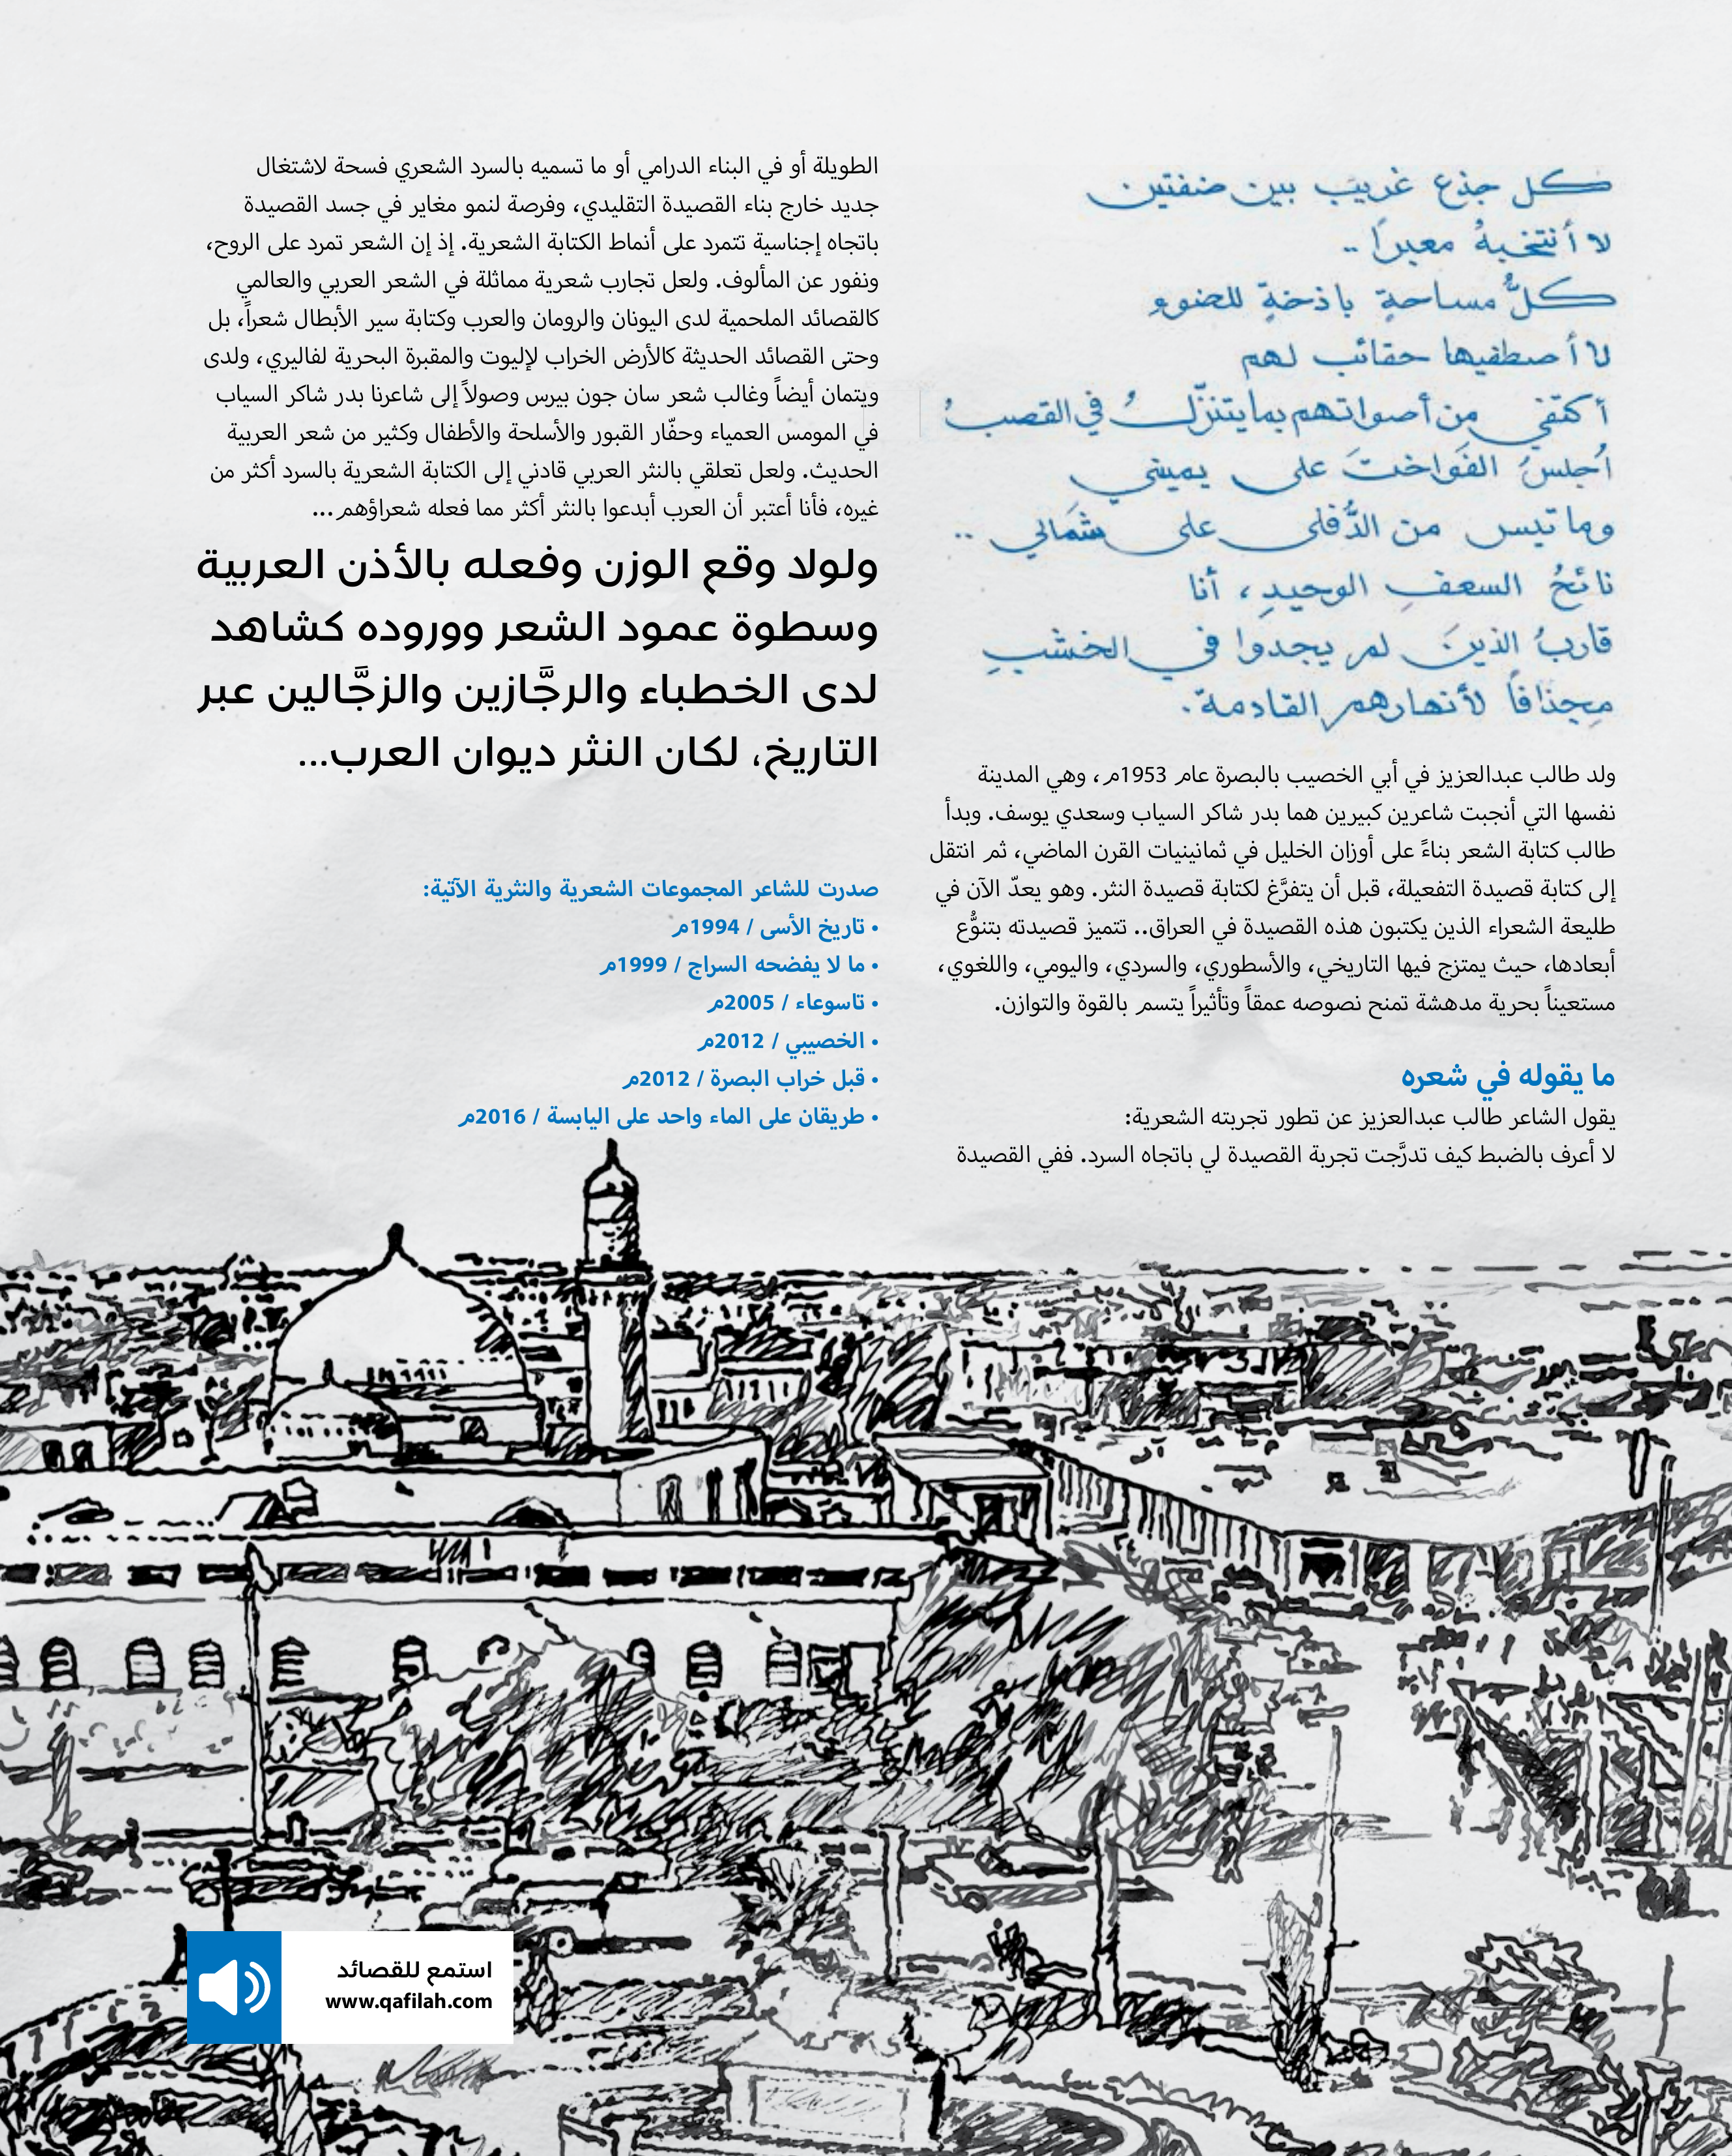 كل جذع غريب بين ضفتين
لا أنتخبهُ معبراً ..
كلُّ مساحةٍ باذخةٍ للضوء
لا أصطفيها حقائب لهم
أكتفي من أصواتهم بما يتنزّلُ في القصبُ
أجلسُ الفَواختَ على يميني
وما تيبس من الدُّفلى على شمَالي ..
نائحُ السعفِ الوحيدِ، أنا
قاربُ الذينَ لم يجدوا في الخشبِ
مِجذافاً لأنهارهم القادمة.
ولد طالب عبدالعزيز في أبي الخصيب بالبصرة عام 1953م، وهي المدينة
نفسها التي أنجبت شاعرين كبيرين هما بدر شاكر السياب وسعدي يوسف. وبدأ
طالب كتابة الشعر بناءً على أوزان الخليل في ثمانينيات القرن الماضي، ثم انتقل
إلى كتابة قصيدة التفعيلة، قبل أن يتفرَّغ لكتابة قصيدة النثر. وهو يعدّ الآن في
طليعة الشعراء الذين يكتبون هذه القصيدة في العراق.. تتميز قصيدته بتنوُّع
أبعادها، حيث يمتزج فيها التاريخي، والأسطوري، والسردي، واليومي، واللغوي،
مستعيناً بحرية مدهشة تمنح نصوصه عمقاً وتأثيراً يتسم بالقوة والتوازن.
ما يقوله في شعره
يقول الشاعر طالب عبدالعزيز عن تطور تجربته الشعرية:
لا أعرف بالضبط كيف تدرَّجت تجربة القصيدة لي باتجاه السرد. ففي القصيدة
الطويلة أو في البناء الدرامي أو ما تسميه بالسرد الشعري فسحة لاشتغال
جديد خارج بناء القصيدة التقليدي، وفرصة لنمو مغاير في جسد القصيدة
باتجاه إجناسية تتمرد على أنماط الكتابة الشعرية. إذ إن الشعر تمرد على الروح،
ونفور عن المألوف. ولعل تجارب شعرية مماثلة في الشعر العربي والعالمي
كالقصائد الملحمية لدى اليونان والرومان والعرب وكتابة سير الأبطال شعراً، بل
وحتى القصائد الحديثة كالأرض الخراب لإليوت والمقبرة البحرية لفاليري، ولدى
ويتمان أيضاً وغالب شعر سان جون بيرس وصولاً إلى شاعرنا بدر شاكر السياب
في المومس العمياء وحفّار القبور والأسلحة والأطفال وكثير من شعر العربية
الحديث. ولعل تعلقي بالنثر العربي قادني إلى الكتابة الشعرية بالسرد أكثر من
غيره، فأنا أعتبر أن العرب أبدعوا بالنثر أكثر مما فعله شعراؤهم...
ولولا وقع الوزن وفعله بالأذن العربية
وسطوة عمود الشعر ووروده كشاهد
لدى الخطباء والرجَّازين والزجَّالين عبر
التاريخ، لكان النثر ديوان العرب...
صدرت للشاعر المجموعات الشعرية والنثرية الآتية:
• تاريخ الأسى / 1994م
• ما لا يفضحه السراج / 1999م
• تاسوعاء / 2005م
• الخصيبي / 2012م
• قبل خراب البصرة / 2012م
• طريقان على الماء واحد على اليابسة / 2016م
استمع للقصائد
www.qafilah.com